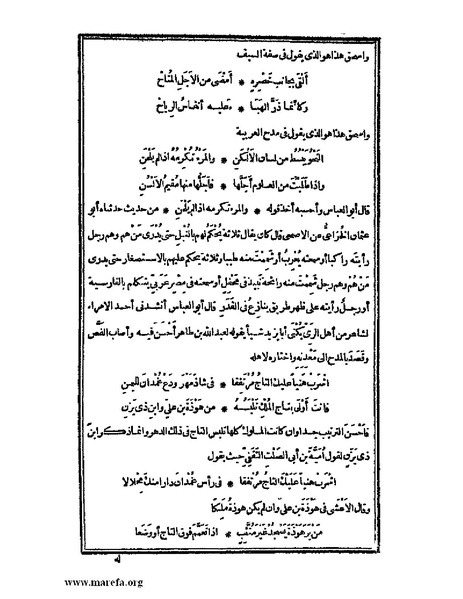 واسحق هذا هو الذى يقول فى صفة السيف
أَلْقَى بجانب خَصْرِه * أَمْضَى من الأَجَلِ المُتاحْ
وكأنما ذَرُّ الهَبا * ءعليه أنفاسُ الرياحْ
واسحق هذا هو الذى يقول فى مدح العربية
النحوُ يَبْسُط من لسان الأَلْكَنِ * والمرءُ تُكْرِمُهُ اذا لم يَلْحَنِ
واذا طَلَبْتَ من العلوم أَجَلَّها * فأجلُّها منها مُقيمُ الأَلْسُنِ
قال أبو العباس وأحسبه أخذ قوله * والمرء تكرمه اذا لم يَلْحَنِ * من حديث حدثناه أبو
عثمان الخُزاعىُّ عن الاصمعى قال كان يقال ثلاثة يُحْكَمُ لهم بالنُّبْل حتى يُدْرَى مَنْ هم وهم رجل
رأيتَه راكبا أو سمعتَه يُعْرِبُ أو شَمِمْتَ منه طيبا وثلاثة يحكم عليهم بالاستصغار حتى يدرى
مَنْ هُم وهم رجل شَمِمْتَ منه رائحةَ نبيذ فى محفل أو سمعته فى مِصْرٍ عَرَبِىٍّ يتكلم بالفارسية
أو رجلٌ رأيته على ظهر طريق ينازع فى القَدَر قال أبو العباس أنشدنى أحد الامراء
لشاعر من أهل الرَّىّ يُكْنَى أبا يزيد شيأ يقوله لعبد الله بن طاهر أحسن فيه وأصاب الفَصَّ
وقَصَد بالمدح الى مَعْدِنِه واختاره لاهله
اشرَبْ هَنيأً عليك التاجُ مُرْتَفِقا * فى شاذِمِهْرَ ودَعْ غُمْدانَ لليَمنِ
فانت أَوْلَى بتاج المُلْكِ تَلْبَسُهُ * من هَوْذَةَ بنِ علىٍّ وابنِ ذى يَزَنِ
فأحْسَنَ الترتيب جدا وان كانت الملوك كلها تلبس التاج فى ذلك الدهر وانما ذكر ابنَ
ذى يَزَنٍ لقول أُمَيَّةَ بن أبى الصَّلْتِ الثَّقَفِىّ حيث يقول
اشربْ هنيأً عَلَيْكَ التاجُ مُرْتَفِقاً * فى رأس غُمْدانَ دارا منك مِحْلالا
وقال الأعْشَى فى هَوْذَةَ بن على وان لم يكن هوذةُ مَلِكا
مَنْ يَرَ هَوْذَةَ يَسْجُدْ غيرَ مُتَّئِبٍ * اذا تَعَمَّمَ فوق التاج أو وَضَعا
www.marefa.org